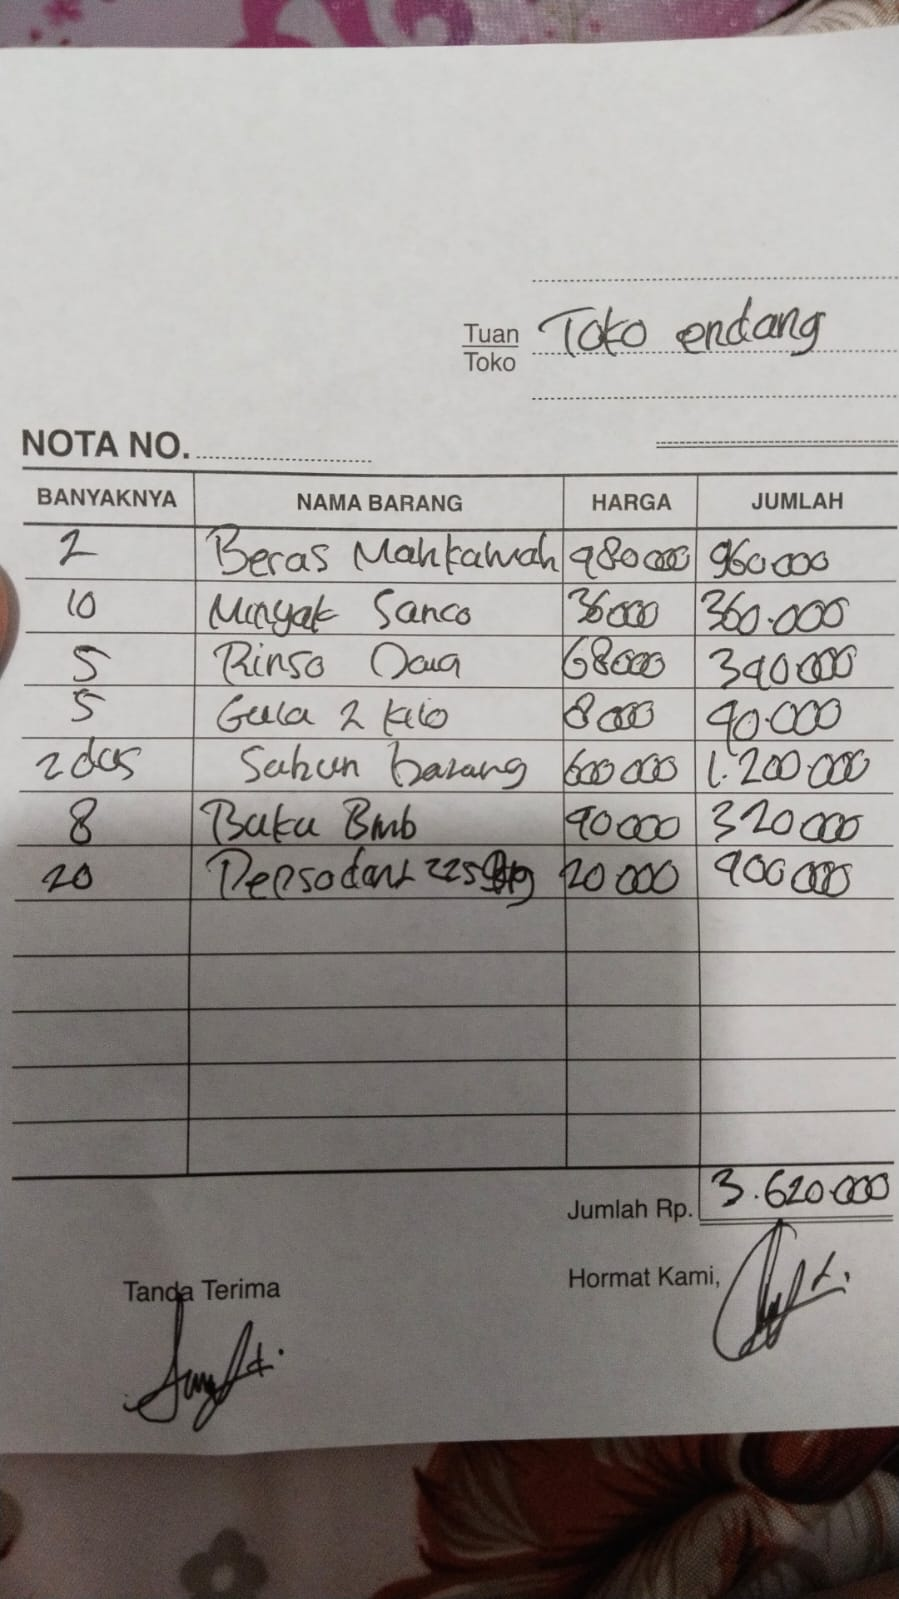 Tuan
Toko
Toko endang
NOTA NO.
BANYAKNYA NAMA BARANG HARGA JUMLAH
2 Beras Mahkamah 480000 960000
10 Minyak Sanco 36000 360.000
5 Rinso Daia 68000 340000
5 Gula 2 kilo 8000 40.000
2 dus Sabun barang 600000 1.200.000
8 Buku Bmb 40000 320000
20 Pepsodent 225 20000 400000
Jumlah Rp. 3.620.000
Tanda Terima Hormat Kami,